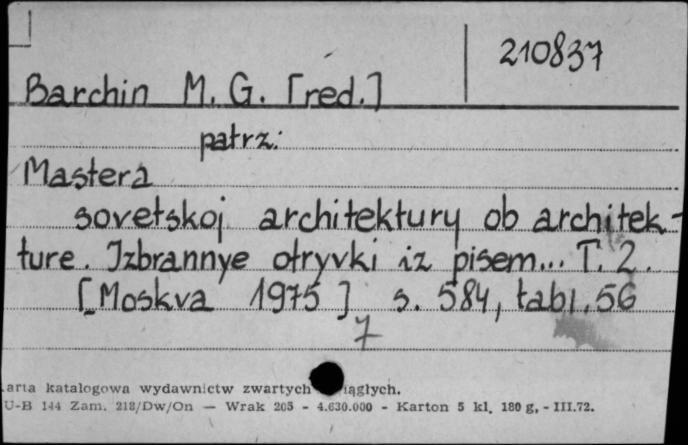 210837
Barchin M. G. [red.]
patrz:
Mastera
sovetskoj architektury ob architek-
ture. Izbrannye otryvki iz pisem... T. 2.
[Moskva 1975] s. 584, tabl. 56
7
arta katalogowa wydawnictw zwartych iągłych.
U-B 144 Zam. 218/Dw/On — Wrak 205 - 4.630.000 - Karton 5 kl. 180 g, - III.72.